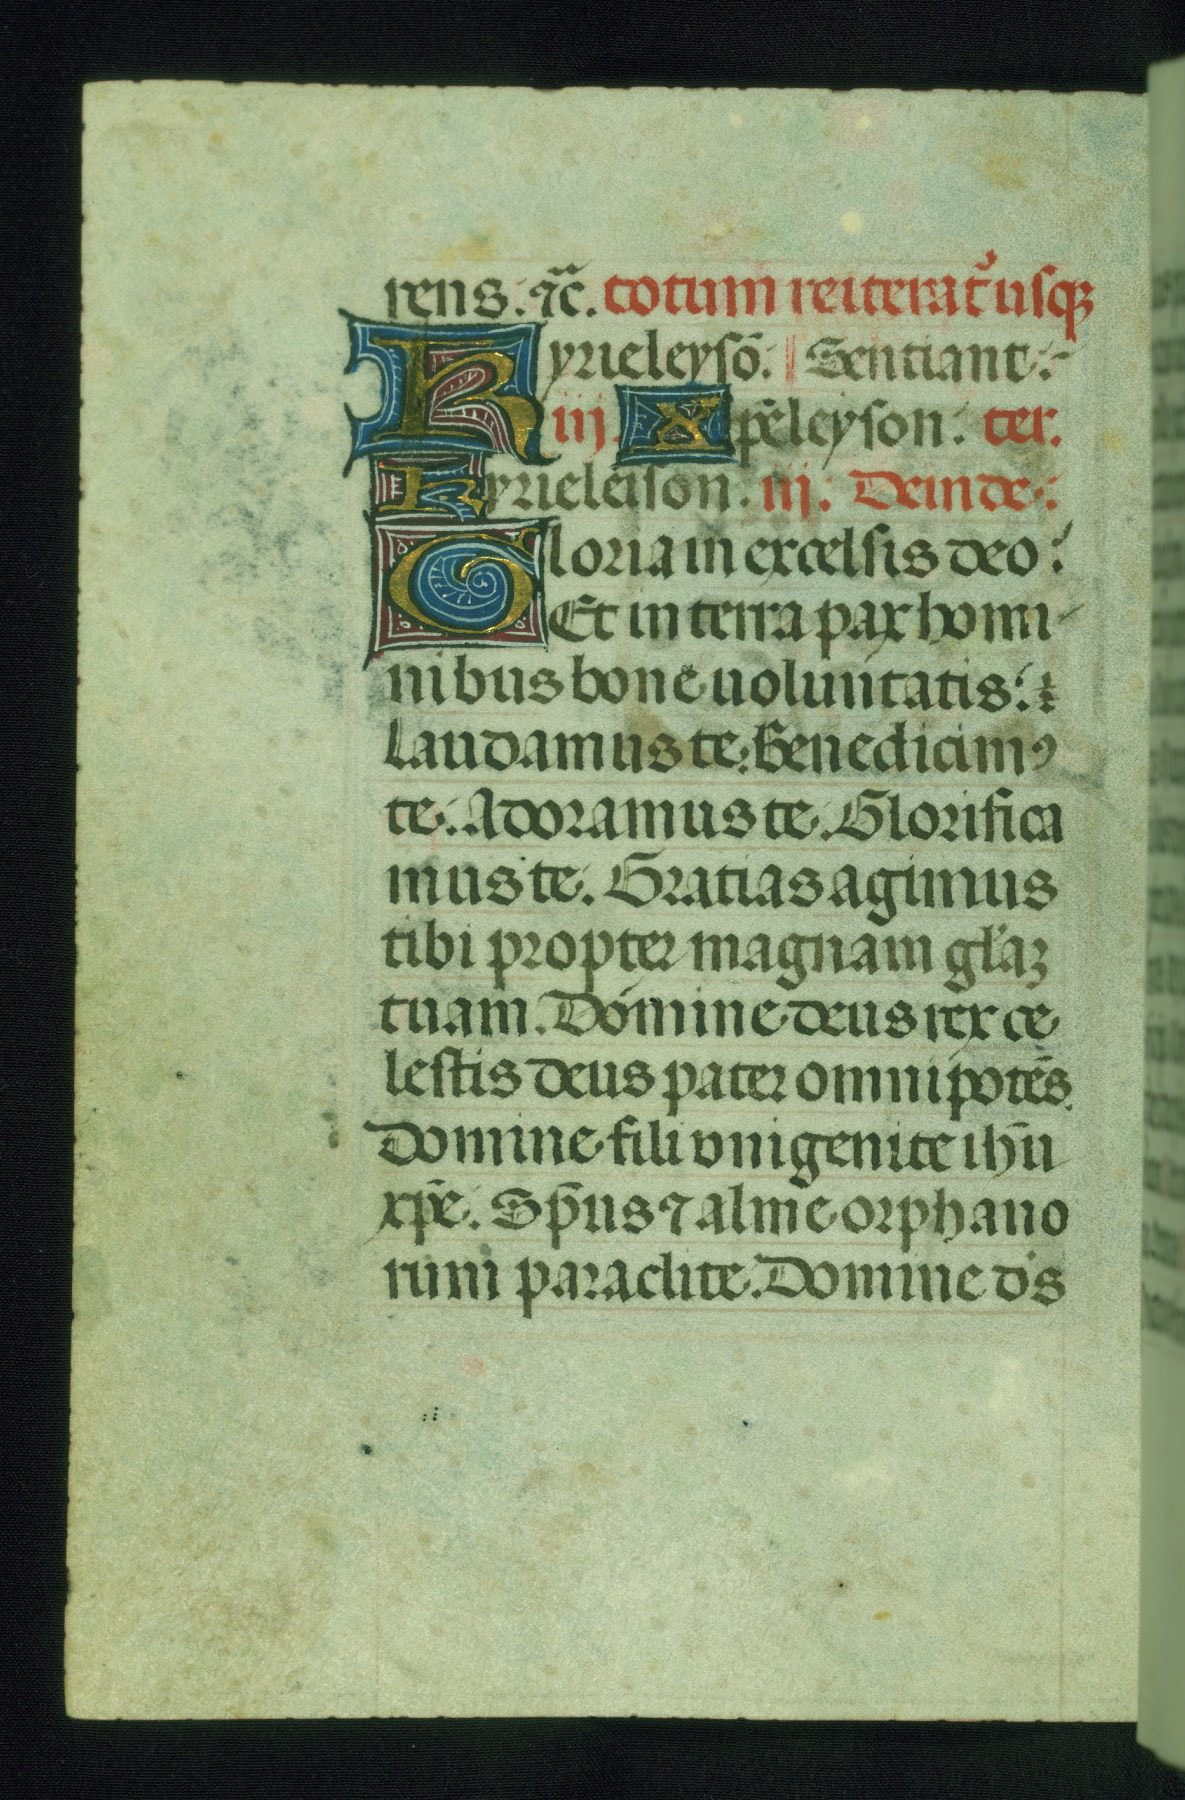 rens. ⁊c̃. totum reiterat᷑ usqꝫ
Kyrieleysō. Sentiant.
iij. Xp̄eleyson. ter.
Kyrieleison. iij. Deinde.
Gloria in excelsis deo.
Et in terra pax homi
nibus bone uoluntatis.
Laudamus te. Benedicimꝰ
te. Adoramus te. Glorifica
mus te. Gratias agimus
tibi propter magnam gl'aꝫ
tuam. Domine deus rex ce
lestis deus pater omnipotēs.
Domine fili vnigenite ihū
xp̄e. Sp̄us ⁊ alme orphano
rum paraclite. Domine d's